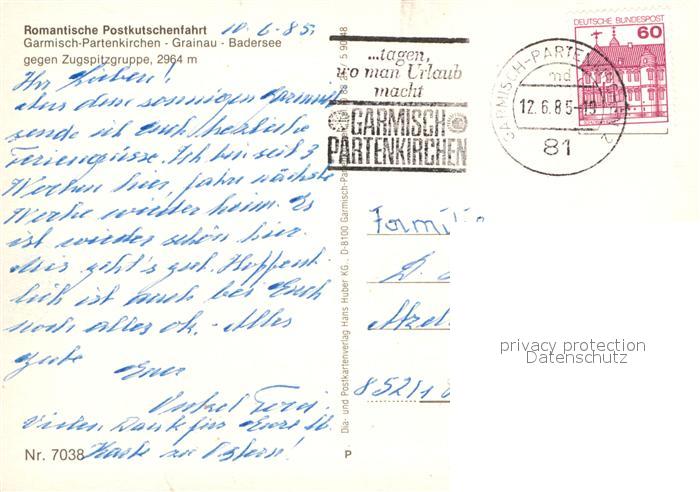 Romantische Postkutschenfahrt
10.6.85.
Garmisch-Partenkirchen - Grainau - Badersee
gegen Zugspitzgruppe, 2964 m
Ihr Lieben!
Aus dem sonnigen Garmisch
sende ich Euch herzliche
Feriengrüsse. Ich bin seit 3
Wochen hier, fahre nächste
Woche wieder heim. Es
ist wieder schön hier.
Mir geht's gut. Hoffent-
lich ist auch bei Euch
noch alles ok. - Alles
Gute
Euer
Onkel Ferdi.
Vielen Dank für Eure lb.
Karte zu Ostern!
Nr. 7038
P
Dia- und Postkartenverlag Hans Huber KG., D-8100 Garmisch-Pa
...tagen,
wo man Urlaub
macht
GARMISCH
PARTENKIRCHEN
GARMISCH-PARTE
md
12.6.85-
81
2
DEUTSCHE BUNDESPOST
60
Famili
8521
privacy protection
Datenschutz